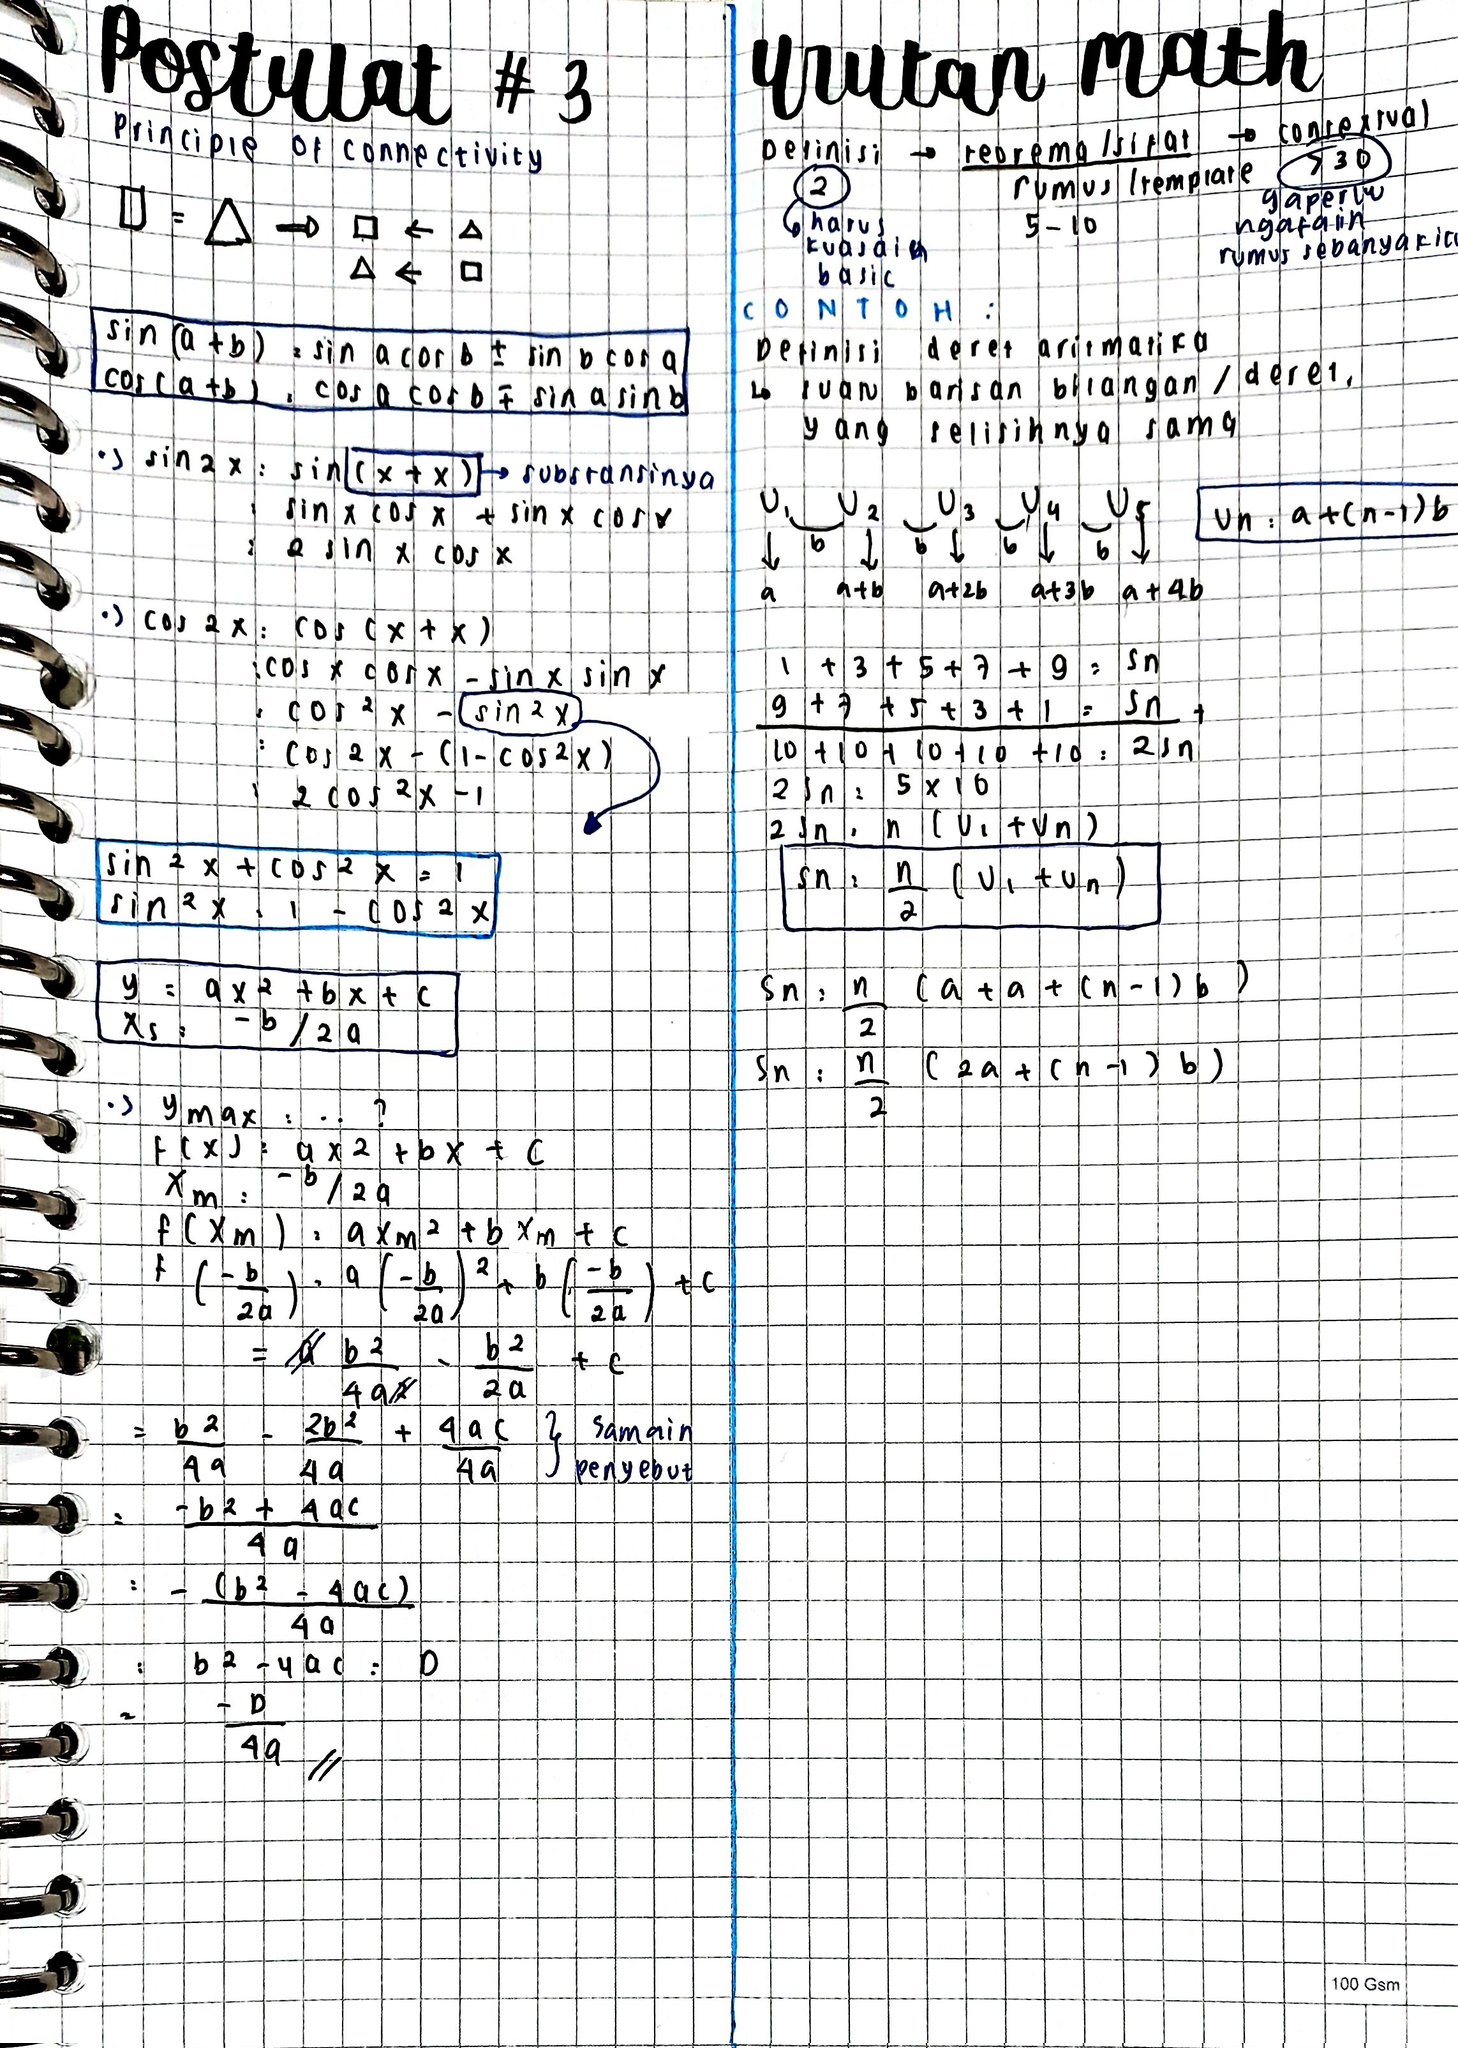 Postulat # 3
Principle of connectivity
▯ = △ → □ ← △
△ ← □
sin (a+b) : sin a cos b ± sin b cos a
cos (a+b) : cos a cos b ∓ sin a sin b
•) sin 2x : sin (x + x) → substansinya
: sin x cos x + sin x cos x
: 2 sin x cos x
•) cos 2x : cos (x + x)
: cos x cos x - sin x sin x
: cos² x - sin² x
: cos² x - (1 - cos² x)
: 2 cos² x - 1
sin² x + cos² x = 1
sin² x : 1 - cos² x
y = ax² + bx + c
xs : -b/2a
•) y max : ... ?
f(x) : ax² + bx + c
xm : -b/2a
f(xm) : a xm² + b xm + c
f (-b/2a) : a (-b/2a)² + b (-b/2a) + c
= a b²/4a² - b²/2a + c
= b²/4a - 2b²/4a + 4ac/4a } samain
penyebut
= -b² + 4ac / 4a
: -(b² - 4ac) / 4a
: b² - 4ac : D
= -D/4a //
urutan math
Definisi → teorema/sifat → contextual
2 rumus/template > 30
harus 5-10 gaperlu
kuasain ngafalin
basic rumus sebanyak itu
CONTOH :
Definisi deret aritmatika
↳ suatu barisan bilangan / deret,
yang selisihnya sama
U₁ U₂ U₃ U₄ U₅ Un : a + (n-1) b
b b b b
a a+b a+2b a+3b a+4b
1 + 3 + 5 + 7 + 9 = Sn
9 + 7 + 5 + 3 + 1 = Sn +
10 + 10 + 10 + 10 + 10 : 2Sn
2 Sn : 5 x 10
2 Sn : n (U₁ + Un)
Sn : n/2 (U₁ + Un)
Sn : n/2 (a + a + (n-1) b)
Sn : n/2 (2a + (n-1) b)
100 Gsm